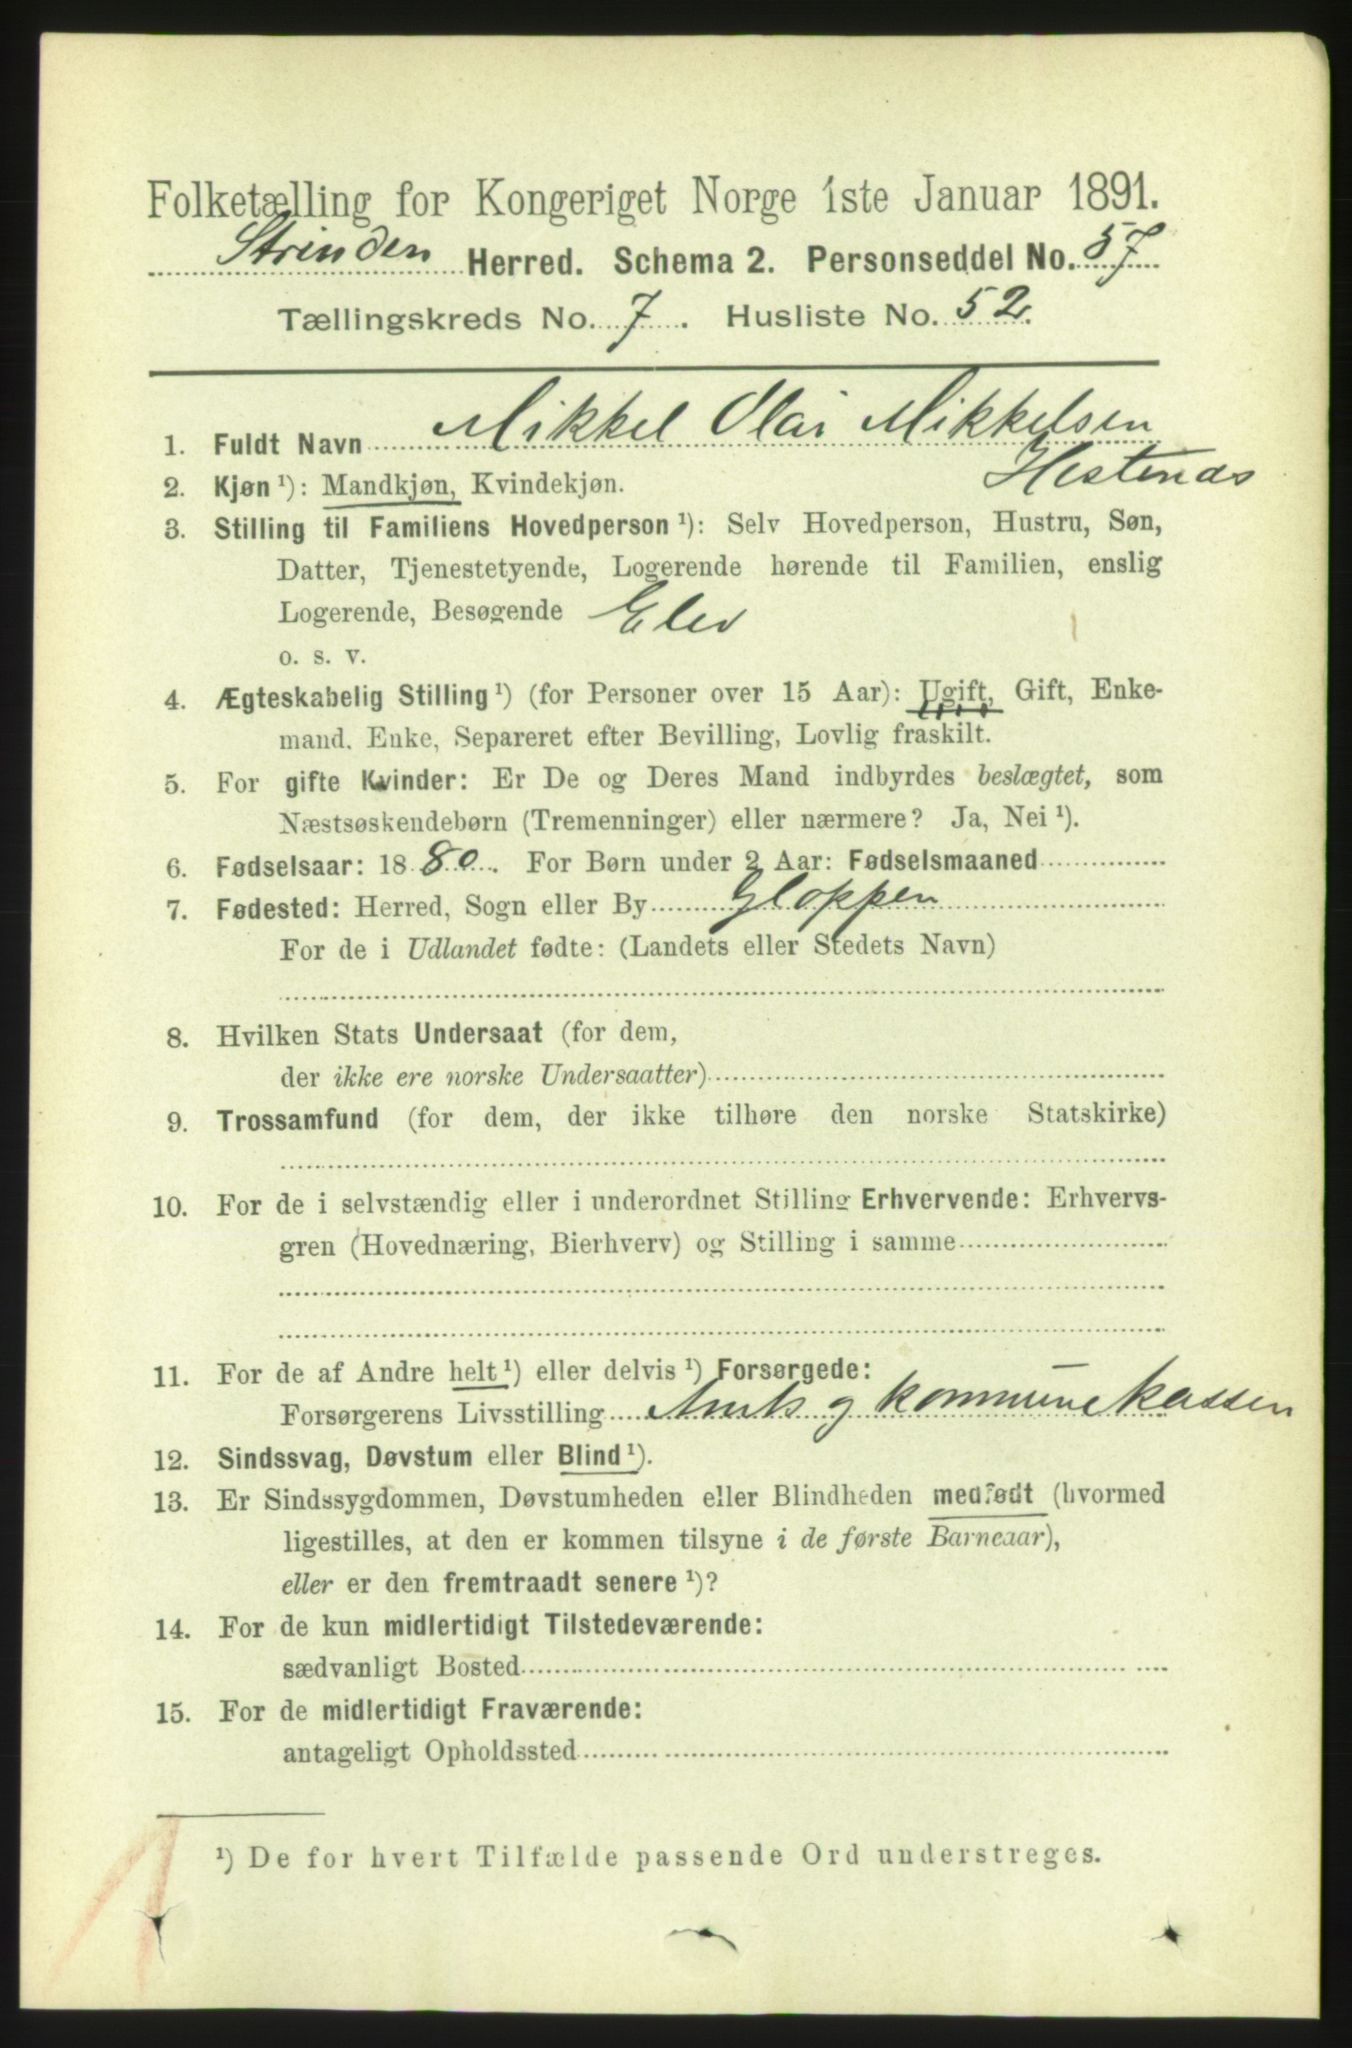 Folketælling for Kongeriget Norge 1ste Januar 1891.
Strinden Herred. Schema 2. Personseddel No. 57
Tællingskreds No. 7. Husliste No. 52.
1. Fuldt Navn Mikkel Olai Mikkelsen
Hestenæs
2. Kjøn ¹): Mandkjøn, Kvindekjøn.
3. Stilling til Familiens Hovedperson ¹): Selv Hovedperson, Hustru, Søn,
Datter, Tjenestetyende, Logerende hørende til Familien, enslig
Logerende, Besøgende Elev
o. s. v.
4. Ægteskabelig Stilling ¹) (for Personer over 15 Aar): Ugift, Gift, Enke-
mand, Enke, Separeret efter Bevilling, Lovlig fraskilt.
5. For gifte Kvinder: Er De og Deres Mand indbyrdes beslægtet, som
Næstsøskendebørn (Tremenninger) eller nærmere? Ja, Nei ¹).
6. Fødselsaar: 1880. For Børn under 2 Aar: Fødselsmaaned
7. Fødested: Herred, Sogn eller By Gloppen
For de i Udlandet fødte: (Landets eller Stedets Navn)
8. Hvilken Stats Undersaat (for dem,
der ikke ere norske Undersaatter)
9. Trossamfund (for dem, der ikke tilhøre den norske Statskirke)
10. For de i selvstændig eller i underordnet Stilling Erhvervende: Erhvervs-
gren (Hovednæring, Bierhverv) og Stilling i samme
11. For de af Andre helt ¹) eller delvis ¹) Forsørgede:
Forsørgerens Livsstilling Amts og kommunekassen
12. Sindssvag, Døvstum eller Blind ¹).
13. Er Sindssygdommen, Døvstumheden eller Blindheden medfødt (hvormed
ligestilles, at den er kommen tilsyne i de første Barneaar),
eller er den fremtraadt senere ¹)?
14. For de kun midlertidigt Tilstedeværende:
sædvanligt Bosted
15. For de midlertidigt Fraværende:
antageligt Opholdssted
¹) De for hvert Tilfælde passende Ord understreges.